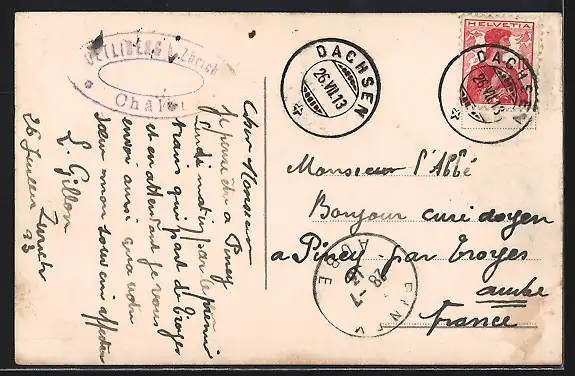 UETLIBERG b. Zürich
Chalet
DACHSEN
26.VII.13
HELVETIA
DACHSEN
26.VII.13
Cher Monsieur
Je pense être a Piney
Lundi matin par le premier
train qui part de Troyes
et en attendant je vous
envoi ainsi qua votre
sœur mon souvenir affectueux
L. Gillon
Zurich
26 Juillet 13
Monsieur l'Abbé
Bonjour curé doyen
a Piney par Troyes
aube
France
PINEY
28 -7
AUBE